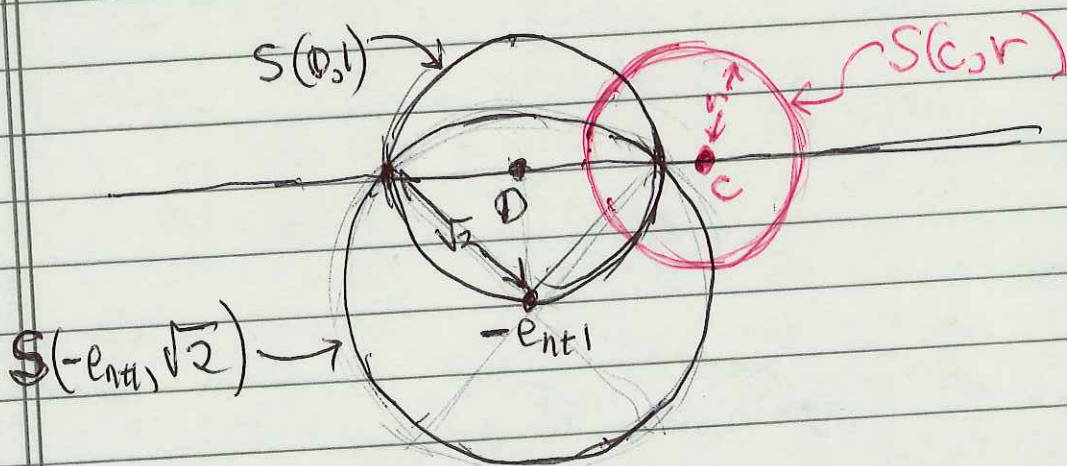 S(0,1)
S(c,r)
r
0
c
√2
-e_{n+1}
S(-e_{n+1}, √2)